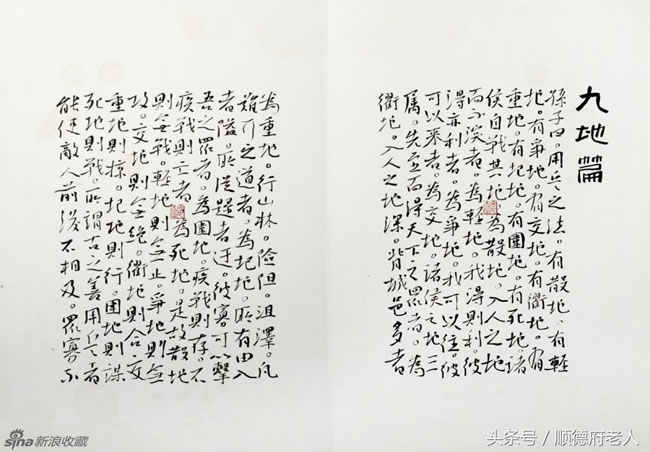 九地篇
孫子曰。用兵之法。有散地。有輕
地。有爭地。有交地。有衢地。有
重地。有圮地。有圍地。有死地。諸
侯自戰其地。為散地。入人之地
而不深者。為輕地。我得則利。彼
得亦利者。為爭地。我可以往。彼
可以來者。為交地。諸侯之地三
屬。先至而得天下之眾者。為
衢地。入人之地深。背城邑多者
為重地。行山林。險阻。沮澤。凡
難行之道者。為圮地。所由入
者隘。所從歸者迂。彼寡可以擊
吾之眾者。為圍地。疾戰則存。不
疾戰則亡者。為死地。是故散地
則無戰。輕地則無止。爭地則無
攻。交地則無絕。衢地則合交
重地則掠。圮地則行。圍地則謀
死地則戰。所謂古之善用兵者
能使敵人前後不相及。眾寡不
sina新浪收藏
头条号／顺德府老人